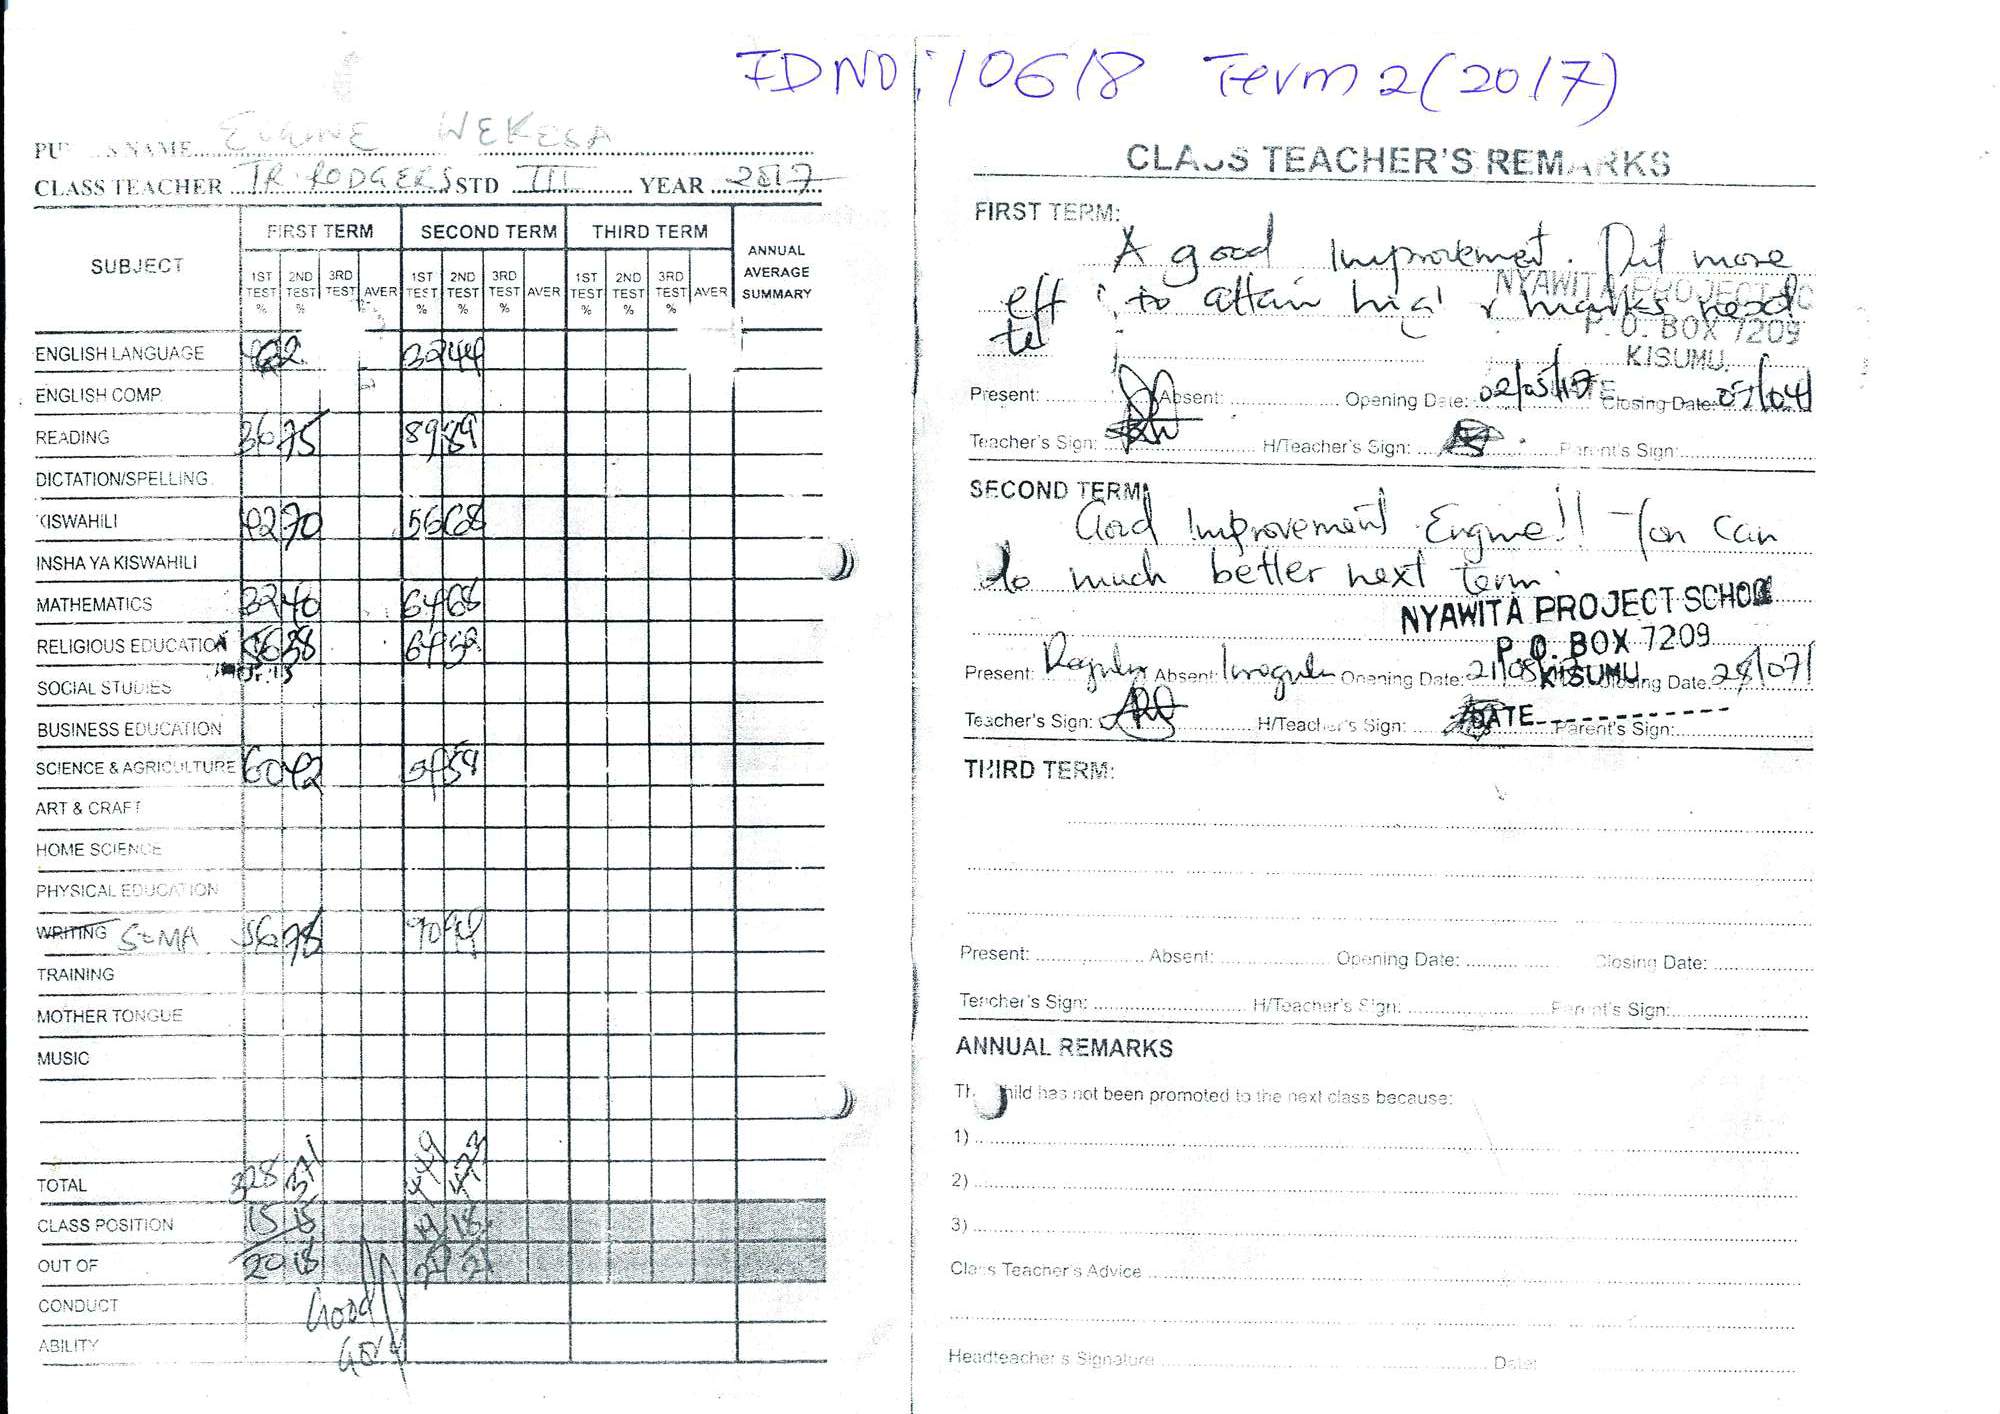 IDNO: 10618 Term 2 (2017)
NAME EUGINE WEKESA
CLASS TEACHER TR. RODGERS STD III YEAR 2017
SUBJECT FIRST TERM SECOND TERM THIRD TERM ANNUAL AVERAGE SUMMARY
1ST TEST % 2ND TEST % 3RD TEST AVER 1ST TEST % 2ND TEST % 3RD TEST % AVER 1ST TEST % 2ND TEST % 3RD TEST % AVER
ENGLISH LANGUAGE 32 44
ENGLISH COMP.
READING 36 75 89 89
DICTATION/SPELLING
KISWAHILI 42 70 56 68
INSHA YA KISWAHILI
MATHEMATICS 32 40 64 68
RELIGIOUS EDUCATION 38 64 52
SOCIAL STUDIES
BUSINESS EDUCATION
SCIENCE & AGRICULTURE 60 42 54 58
ART & CRAFT
HOME SCIENCE
PHYSICAL EDUCATION
WRITING SOMA 56 78 90 94
TRAINING
MOTHER TONGUE
MUSIC
TOTAL 328 371 449 473
CLASS POSITION 15 15 18
OUT OF 20 18 21 21
CONDUCT Good
ABILITY Good
CLASS TEACHER'S REMARKS
FIRST TERM:
A good Improvement. Put more
to attain marks next
NYAWITA PROJECT
P. O. BOX 7209
KISUMU.
DATE
Present: Absent: Opening Date: 02/05/17 Closing Date: 07/04/
Teacher's Sign: H/Teacher's Sign: Parent's Sign:
SECOND TERM:
Good Improvement Engine!! You can
do much better next term.
NYAWITA PROJECT SCHOOL
P. O. BOX 7209
KISUMU.
Present: Regular Absent: Irregular Opening Date: Closing Date: 28/07/
DATE
Teacher's Sign: H/Teacher's Sign: Parent's Sign:
THIRD TERM:
Present: Absent: Opening Date: Closing Date:
Teacher's Sign: H/Teacher's Sign: Parent's Sign:
ANNUAL REMARKS
The child has not been promoted to the next class because:
1)
2)
3)
Class Teacher's Advice
Headteacher's Signature Date: